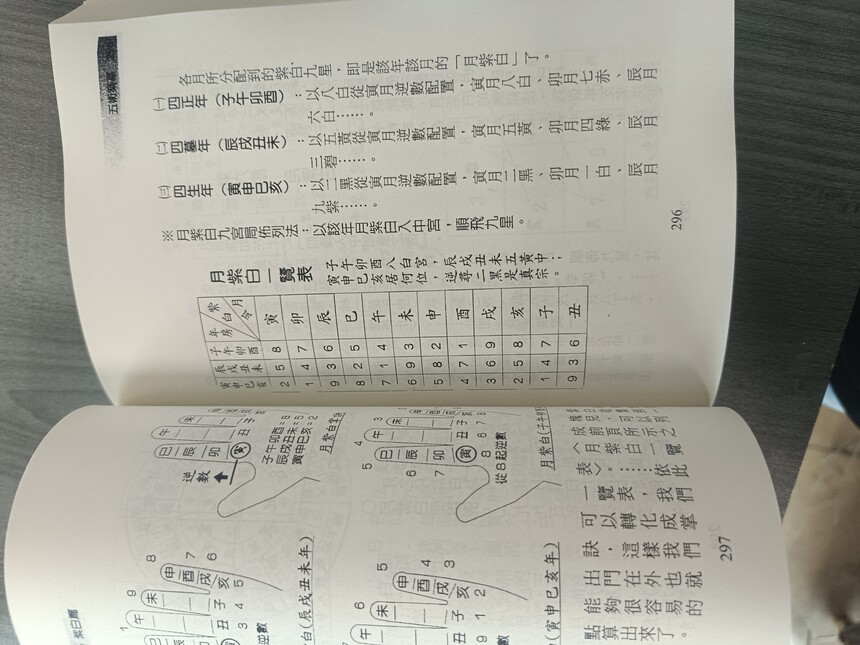 五術
各月所分配到的紫白九星，即是該年該月的「月紫白」了。
㈠四正年（子午卯酉）：以八白從寅月逆數配置，寅月八白、卯月七赤、辰月
六白……。
㈡四墓年（辰戌丑未）：以五黃從寅月逆數配置，寅月五黃、卯月四綠、辰月
三碧……。
㈢四生年（寅申巳亥）：以二黑從寅月逆數配置，寅月二黑、卯月一白、辰月
九紫……。
※月紫白九宮局佈列法：以該年月紫白入中宮，順飛九星。
月紫白一覽表
子午卯酉八白宮，辰戌丑未五黃中；
寅申巳亥居何位，逆尋二黑是真宗。
月令 紫白 年房
寅 卯 辰 巳 午 未 申 酉 戌 亥 子 丑
子午卯酉 8 7 6 5 4 3 2 1 9 8 7 6
辰戌丑未 5 4 3 2 1 9 8 7 6 5 4 3
寅申巳亥 2 1 9 8 7 6 5 4 3 2 1 9
296
未 子
午 丑
巳 辰 卯 寅
逆數
子午卯酉=8
辰戌丑未=5
寅申巳亥=2
月紫白掌訣
3 未 子 7
4 午 丑 6
5 巳 辰 卯 寅 8
6 7
從8起逆數
月紫白(子午卯
成前頁所示之
〈月紫白一覽
表〉。……依此
一覽表，我們
可以轉化成掌
訣，這樣我們
出門在外也就
能夠很容易的
點算出來了。
297
紫白篇
8 申 酉 戌 亥 7 6 5
9 未 子 4
1 午 丑 3
逆數
白(辰戌丑未年)
5 申 酉 戌 亥 4 3 2
6 未 子 1
7 午 丑 9
(寅申巳亥年)